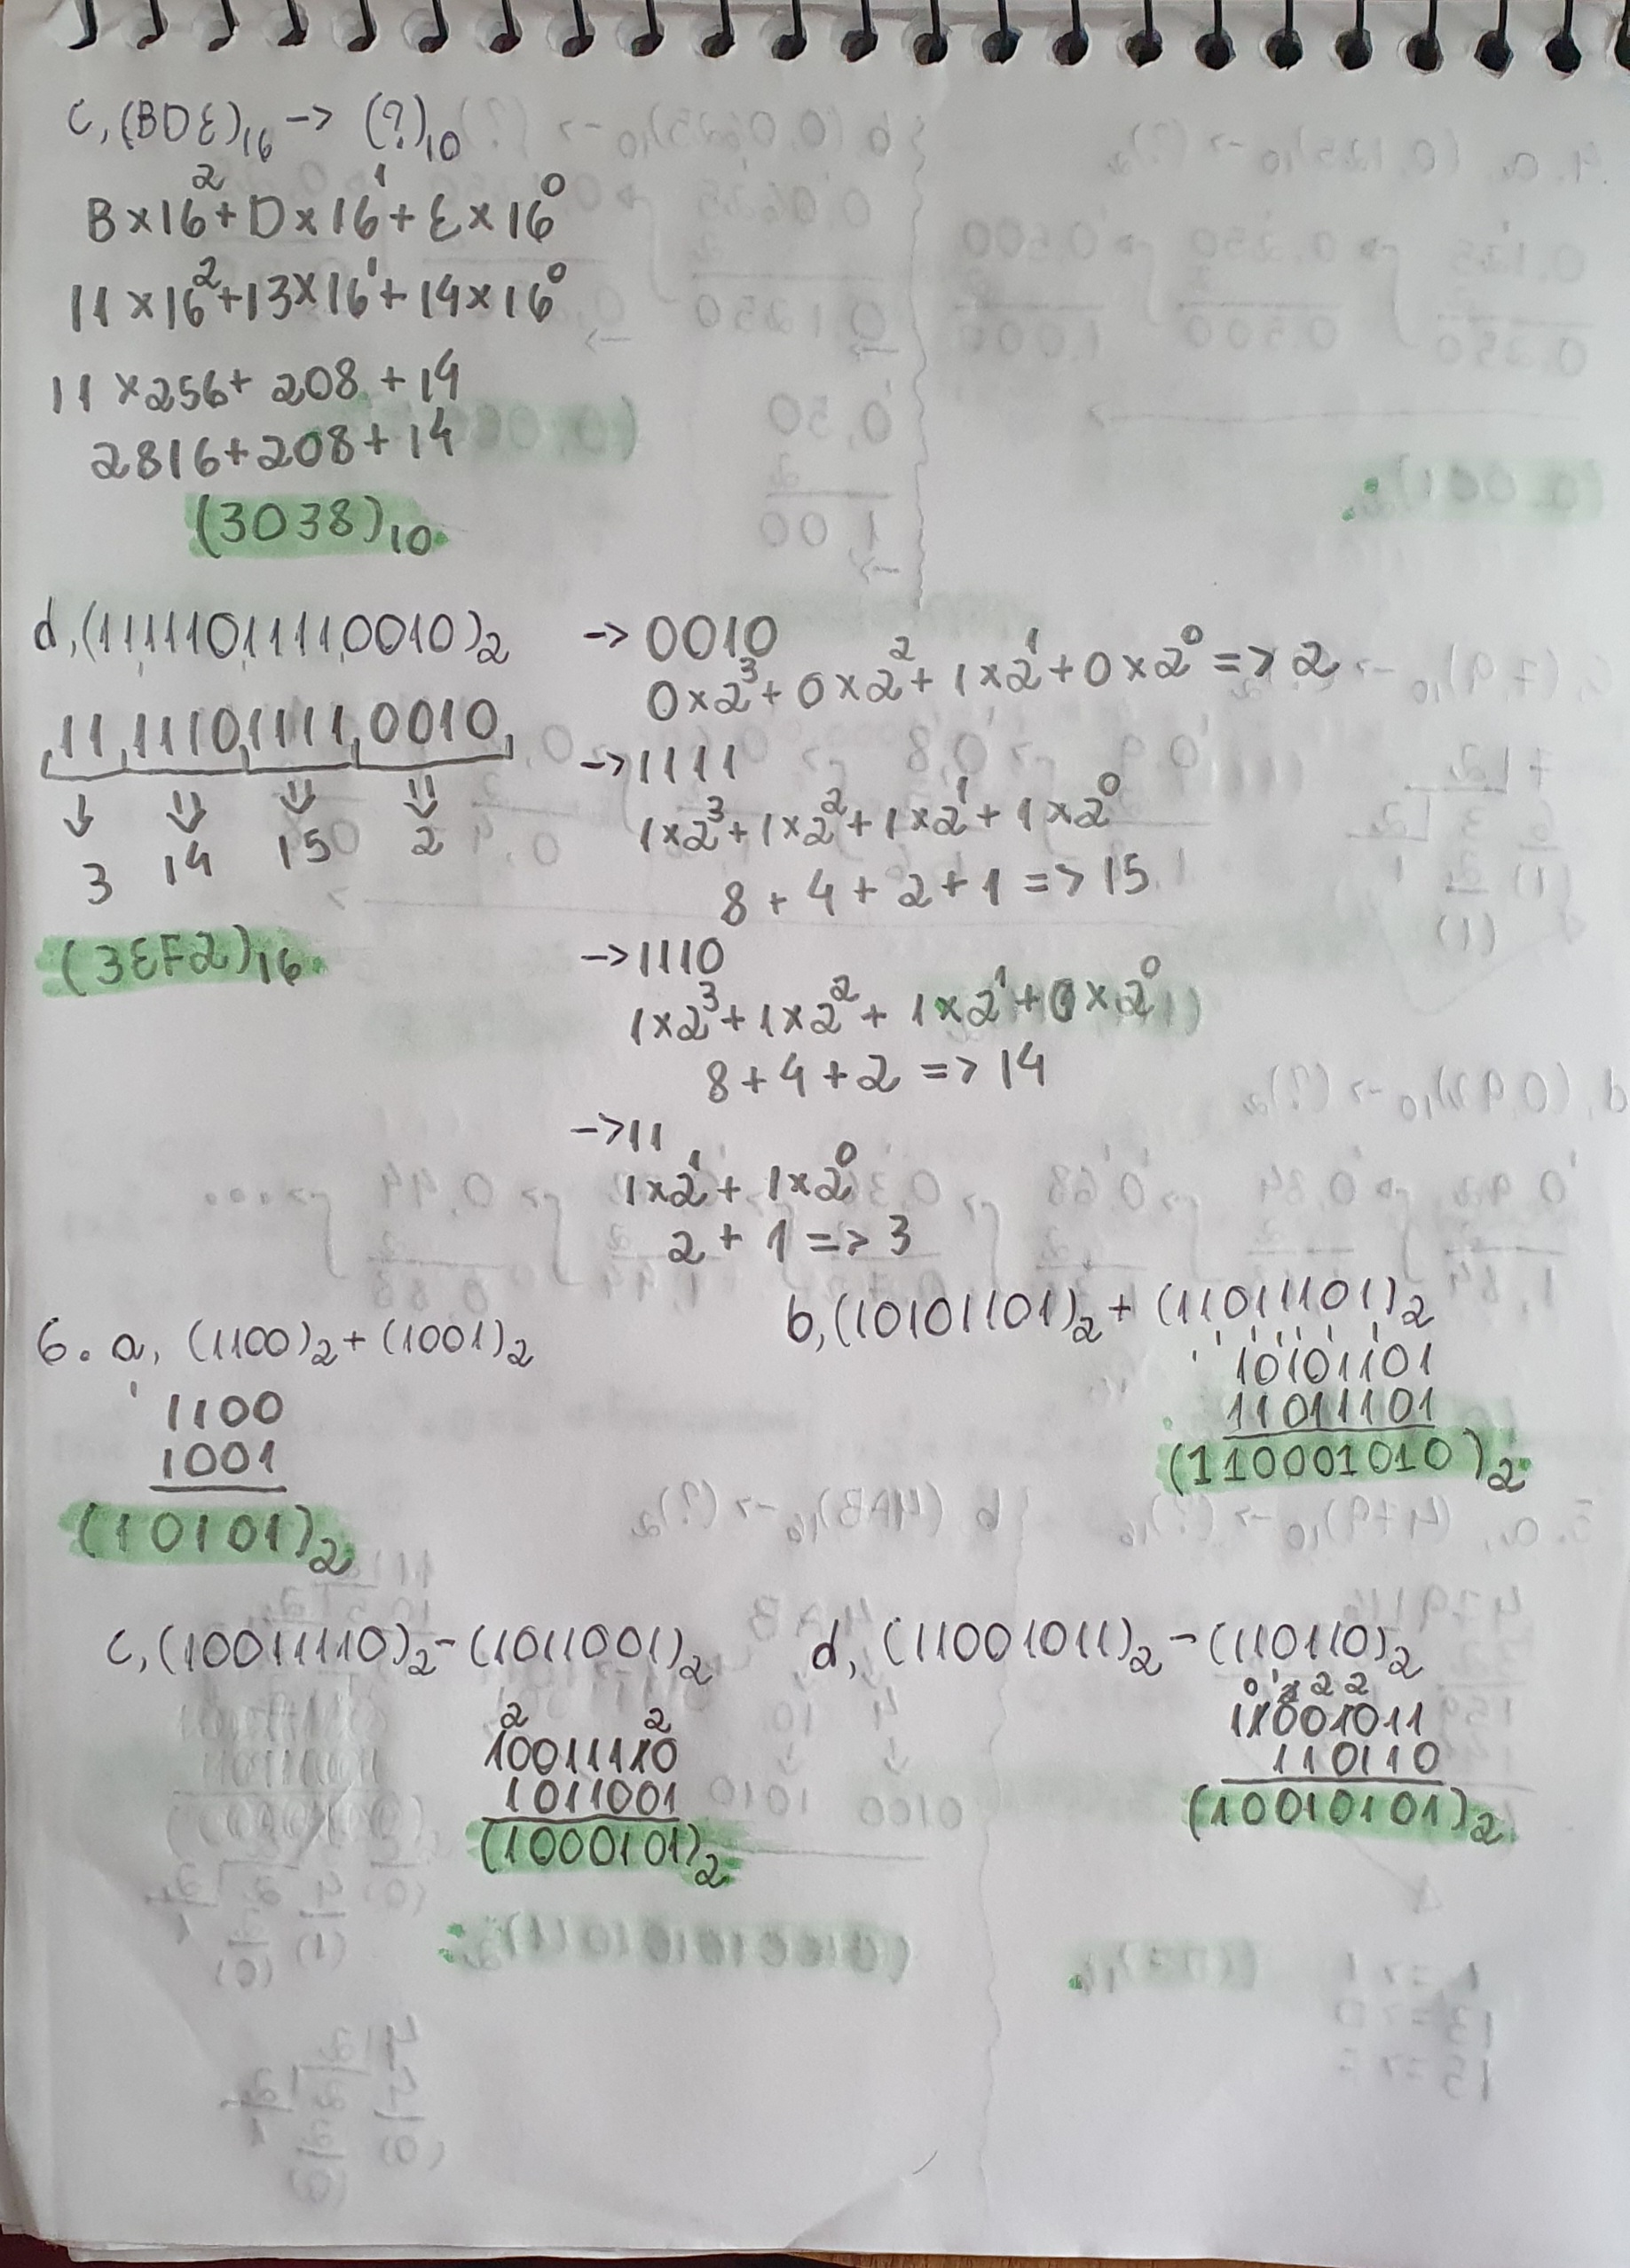 c, (BDE)₁₆ -> (?)₁₀
B×16²+D×16¹+E×16⁰
11×16²+13×16¹+14×16⁰
11×256+208+14
2816+208+14
(3038)₁₀
d, (11,1110,1111,0010)₂
11,1110,1111,0010,
3 14 15 2
(3EF2)₁₆
->0010
0×2³+0×2²+1×2¹+0×2⁰=>2
->1111
1×2³+1×2²+1×2¹+1×2⁰
8+4+2+1=>15
->1110
1×2³+1×2²+1×2¹+0×2⁰
8+4+2=>14
->11
1×2¹+1×2⁰
2+1=>3
6. a, (1100)₂+(1001)₂
1
1100
1001
(10101)₂
b, (10101101)₂+(11011101)₂
10101101
11011101
(110001010)₂
c, (10011110)₂-(1011001)₂
2 2
10011110
1011001
(1000101)₂
d, (11001011)₂-(110110)₂
11001011
110110
(10010101)₂